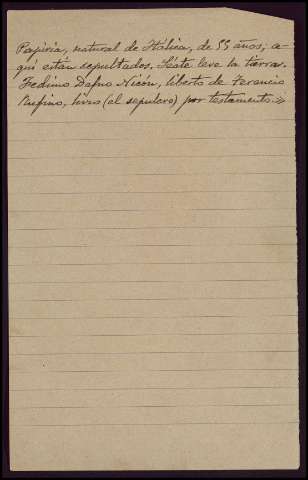 Papiria, natural de Itálica, de 55 años; a-
quí están sepultados. Séate leve la tierra.
Fedimo Dafno Nicón, liberto de Terencio
Rufino, hizo (el sepulcro) por testamento.»